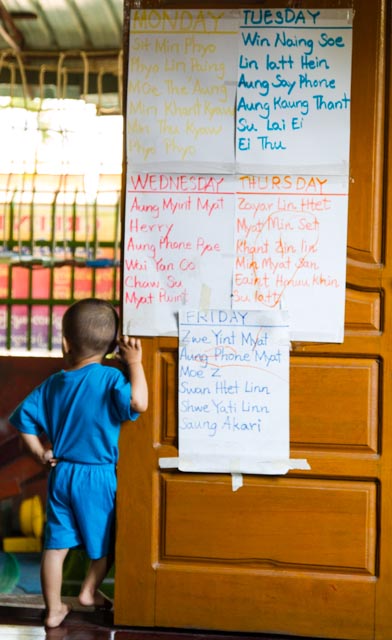 MONDAY
Sit Min Phyo
Phyo Lin Paing
Moe The Aung
Min Khant Kyaw
Min Thu Kyaw
Phyo Phyo
TUESDAY
Win Naing Soe
Lin Latt Hein
Aung Soy Phone
Aung Kaung Thant
Su Lai Ei
Ei Thu
WEDNESDAY
Aung Myint Myat
Herry
Aung Phone Pyae
Wai Yan Oo
Chaw Su
Myat Pwint
THURSDAY
Zayar Lin Htet
Myat Min Set
Khant Zin Lin
Min Myat San
Eaint Hmuu Khin
Su Latt
FRIDAY
Zwe Yint Myat
Aung Phone Myat
Moe Z
Swan Htet Linn
Shwe Yati Linn
Saung Akari